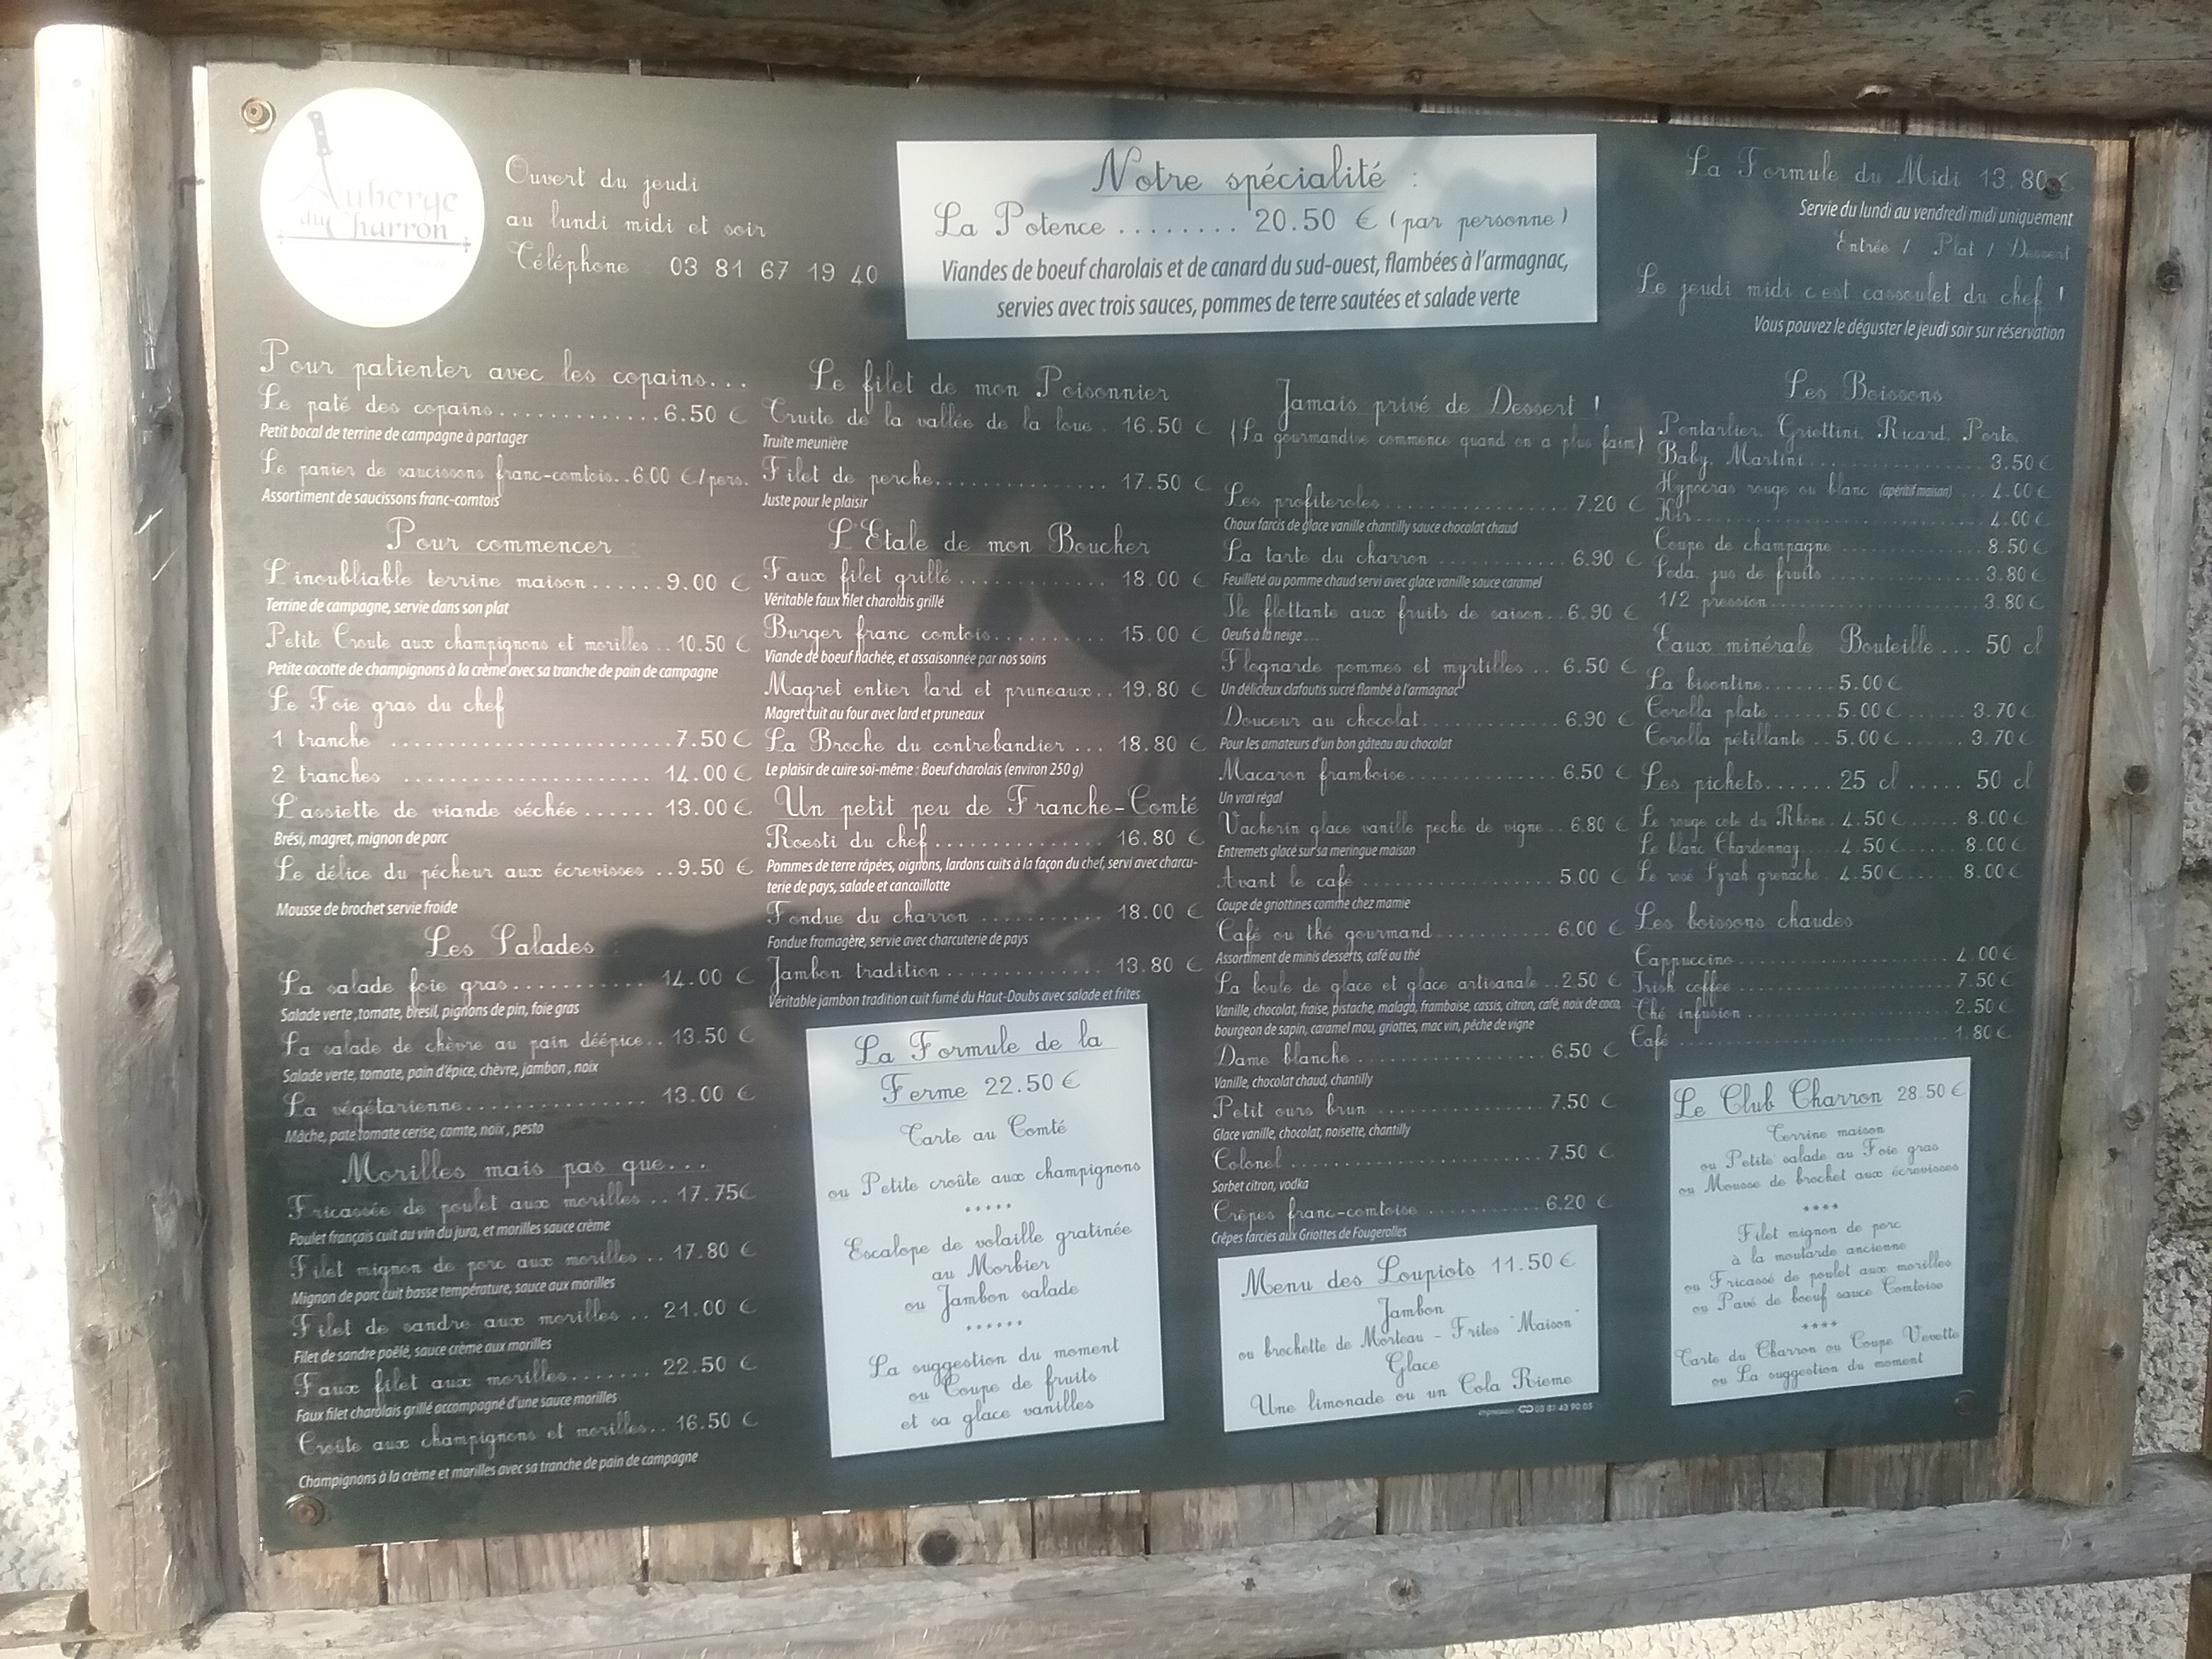 Auberge
du Charron
Ouvert du jeudi
au lundi midi et soir
Téléphone 03 81 67 19 40
Notre spécialité :
La Potence ........ 20.50 € (par personne)
Viandes de boeuf charolais et de canard du sud-ouest, flambées à l'armagnac,
servies avec trois sauces, pommes de terre sautées et salade verte
La Formule du Midi 13.80 €
Servie du lundi au vendredi midi uniquement
Entrée / Plat / Dessert
Le jeudi midi c'est cassoulet du chef !
Vous pouvez le déguster le jeudi soir sur réservation
Pour patienter avec les copains...
Le paté des copains.............6.50 €
Petit bocal de terrine de campagne à partager
Le panier de saucissons franc-comtois..6.00 €/pers.
Assortiment de saucissons franc-comtois
Pour commencer
L'inoubliable terrine maison......9.00 €
Terrine de campagne, servie dans son plat
Petite Croute aux champignons et morilles .. 10.50 €
Petite cocotte de champignons à la crème avec sa tranche de pain de campagne
Le Foie gras du chef
1 tranche ........................7.50 €
2 tranches ...................... 14.00 €
L'assiette de viande séchée...... 13.00 €
Brési, magret, mignon de porc
Le délice du pécheur aux écrevisses ..9.50 €
Mousse de brochet servie froide
Les Salades
La salade foie gras............ 14.00 €
Salade verte ,tomate, bresil, pignons de pin, foie gras
La salade de chèvre au pain déépice.. 13.50 €
Salade verte, tomate, pain d'épice, chèvre, jambon , noix
La végétarienne................ 13.00 €
Mâche, pate tomate cerise, comte, noix , pesto
Morilles mais pas que...
Fricassée de poulet aux morilles .. 17.75€
Poulet français cuit au vin du jura, et morilles sauce crème
Filet mignon de porc aux morilles .. 17.80 €
Mignon de porc cuit basse température, sauce aux morilles
Filet de sandre aux morilles .. 21.00 €
Filet de sandre poêlé, sauce crème aux morilles
Faux filet aux morilles....... 22.50 €
Faux filet charolais grillé accompagné d'une sauce morilles
Croûte aux champignons et morilles.. 16.50 €
Champignons à la crème et morilles avec sa tranche de pain de campagne
Le filet de mon Poisonnier
Truite de la vallée de la loue . 16.50 €
Truite meunière
Filet de perche............... 17.50 €
Juste pour le plaisir
L'Etale de mon Boucher
Faux filet grillé ............. 18.00 €
Véritable faux filet charolais grillé
Burger franc comtois.......... 15.00 €
Viande de boeuf hachée, et assaisonnée par nos soins
Magret entier lard et pruneaux.. 19.80 €
Magret cuit au four avec lard et pruneaux
La Broche du contrebandier ... 18.80 €
Le plaisir de cuire soi-même : Boeuf charolais (environ 250 g)
Un petit peu de Franche-Comté
Roesti du chef............... 16.80 €
Pommes de terre râpées, oignons, lardons cuits à la façon du chef, servi avec charcu-
terie de pays, salade et cancoillotte
Fondue du charron ........... 18.00 €
Fondue fromagère, servie avec charcuterie de pays
Jambon tradition ............. 13.80 €
Véritable jambon tradition cuit fumé du Haut-Doubs avec salade et frites
La Formule de la
Ferme 22.50 €
Tarte au Comté
ou Petite croûte aux champignons
*****
Escalope de volaille gratinée
au Morbier
ou Jambon salade
******
La suggestion du moment
ou Coupe de fruits
et sa glace vanilles
Jamais privé de Dessert !
(La gourmandise commence quand on a plus faim)
Les profiteroles................ 7.20 €
Choux farcis de glace vanille chantilly sauce chocolat chaud
La tarte du charron ............ 6.90 €
Feuilleté au pomme chaud servi avec glace vanille sauce caramel
Ile flottante aux fruits de saison..6.90 €
Oeufs à la neige ...
Flognarde pommes et myrtilles .. 6.50 €
Un délicieux clafoutis sucré flambé à l'armagnac
Douceur au chocolat............ 6.90 €
Pour les amateurs d'un bon gâteau au chocolat
Macaron framboise............. 6.50 €
Un vrai régal
Vacherin glace vanille peche de vigne .. 6.80 €
Entremets glacé sur sa meringue maison
Avant le café ................. 5.00 €
Coupe de griottines comme chez mamie
Café ou thé gourmand .......... 6.00 €
Assortiment de minis desserts, café ou thé
La boule de glace et glace artisanale ..2.50 €
Vanille, chocolat, fraise, pistache, malaga, framboise, cassis, citron, café, noix de coco,
bourgeon de sapin, caramel mou, griottes, mac vin, pêche de vigne
Dame blanche ................. 6.50 €
Vanille, chocolat chaud, chantilly
Petit ours brun ............... 7.50 €
Glace vanille, chocolat, noisette, chantilly
Colonel ...................... 7.50 €
Sorbet citron, vodka
Crêpes franc-comtoise .......... 6.20 €
Crêpes farcies aux Griottes de Fougerolles
Menu des Loupiots 11.50 €
Jambon
ou brochette de Morteau - Frites "Maison"
Glace
Une limonade ou un Cola Rieme
impression 03 81 43 90 05
Les Boissons
Pontarlier, Griottini, Ricard, Porto,
Baby, Martini ................ 3.50 €
Hypocras rouge ou blanc (apéritif maison) ... 4.00 €
Kir........................... 4.00 €
Coupe de champagne ............ 8.50 €
Soda, jus de fruits ............ 3.80 €
1/2 pression................... 3.80 €
Eaux minérale Bouteille ... 50 cl
La bisontine....... 5.00 €
Corolla plate...... 5.00 € ...... 3.70 €
Corolla pétillante .. 5.00 € ...... 3.70 €
Les pichets...... 25 cl ..... 50 cl
Le rouge cote du Rhône . 4.50 € ...... 8.00 €
Le blanc Chardonnay .... 4.50 € ...... 8.00 €
Le rosé Syrah grenache . 4.50 € ...... 8.00 €
Les boissons chaudes
Cappuccino.................... 4.00 €
Irish coffee ................... 7.50 €
Thé infusion .................. 2.50 €
Café ......................... 1.80 €
Le Club Charron 28.50 €
Terrine maison
ou Petite salade au Foie gras
ou Mousse de brochet aux écrevisses
****
Filet mignon de porc
à la moutarde ancienne
ou Fricassé de poulet aux morilles
ou Pavé de boeuf sauce Comtoise
****
Tarte du Charron ou Coupe Vevette
ou La suggestion du moment